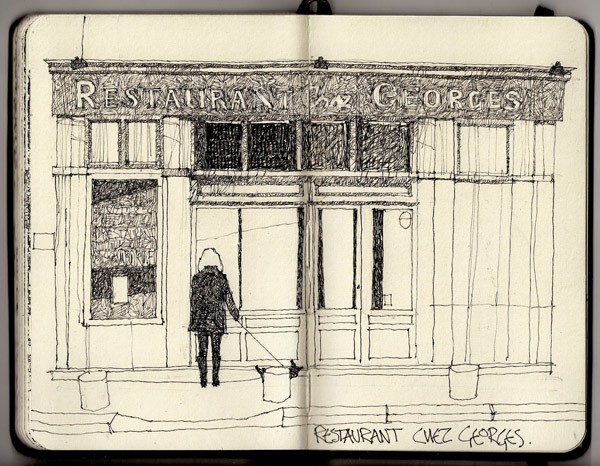 RESTAURANT Chez GEORGES
RESTAURANT CHEZ GEORGES.